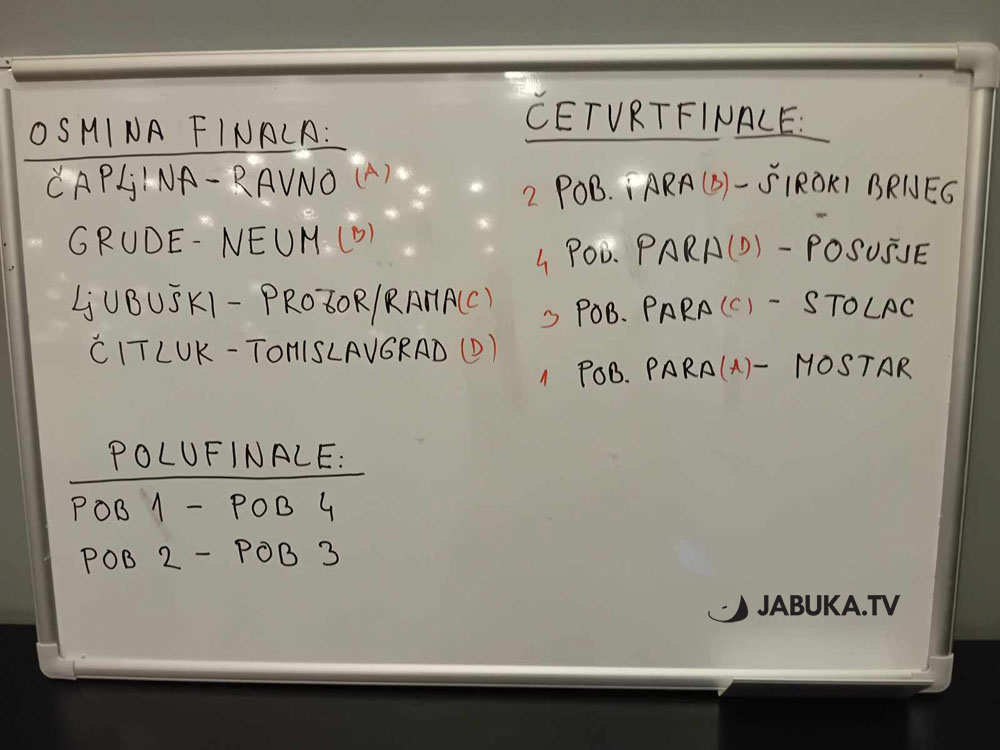 OSMINA FINALA:
ČAPLjINA - RAVNO (A)
GRUDE - NEUM (B)
LjUBUŠKI - PROZOR/RAMA (C)
ČITLUK - TOMISLAVGRAD (D)
POLUFINALE:
POB 1 - POB 4
POB 2 - POB 3
ČETVRTFINALE:
2 POB. PARA (B) - ŠIROKI BRIJEG
4 POB. PARA (D) - POSUŠJE
3 POB. PARA (C) - STOLAC
1 POB. PARA (A) - MOSTAR
JABUKA.TV